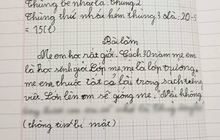 Thùng bé nhỏ là: thùng 1
Thùng thứ nhất kém thùng 3 là: 20-5
= 15(l)
Bài làm
Mẹ em học rất giỏi. Cách 30 năm mẹ em
là học sinh giỏi lớp mẹ, mẹ là lớp trưởng,
mẹ em thuộc tất cả bài trong sách tiếng
việt. Lớn lên em sẽ giống mẹ.
(thông tin bí mật)